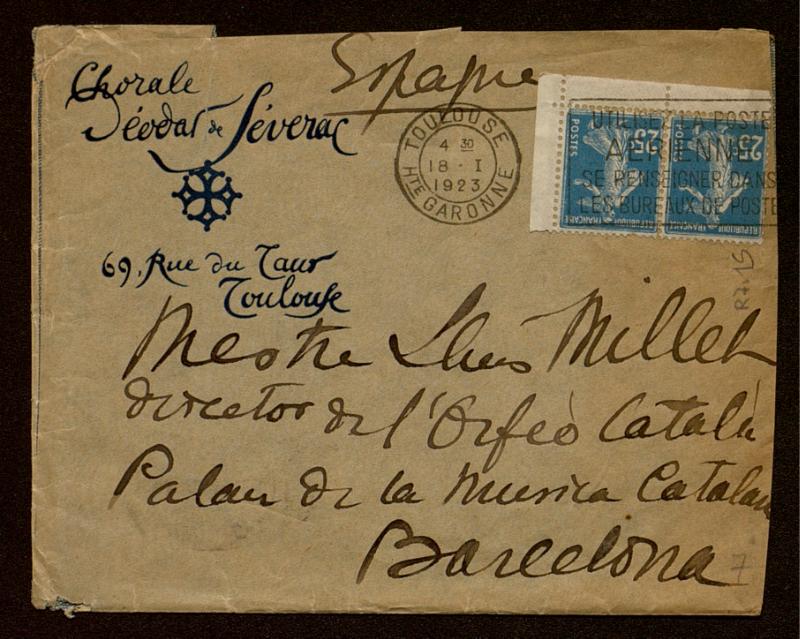 Chorale
Déodat de Séverac
69, Rue du Taur
Toulouse
Espagne
TOULOUSE
4 30
18 - I
1923
HTE GARONNE
UTILISEZ LA POSTE
AERIENNE
SE RENSEIGNER DANS
LES BUREAUX DE POSTE
25c POSTES REPUBLIQUE FRANÇAISE
25c POSTES REPUBLIQUE FRANÇAISE
Mestre Lluis Millet
director de l'Orfeò Català
Palau de la Musica Catalana
Barcelona
7